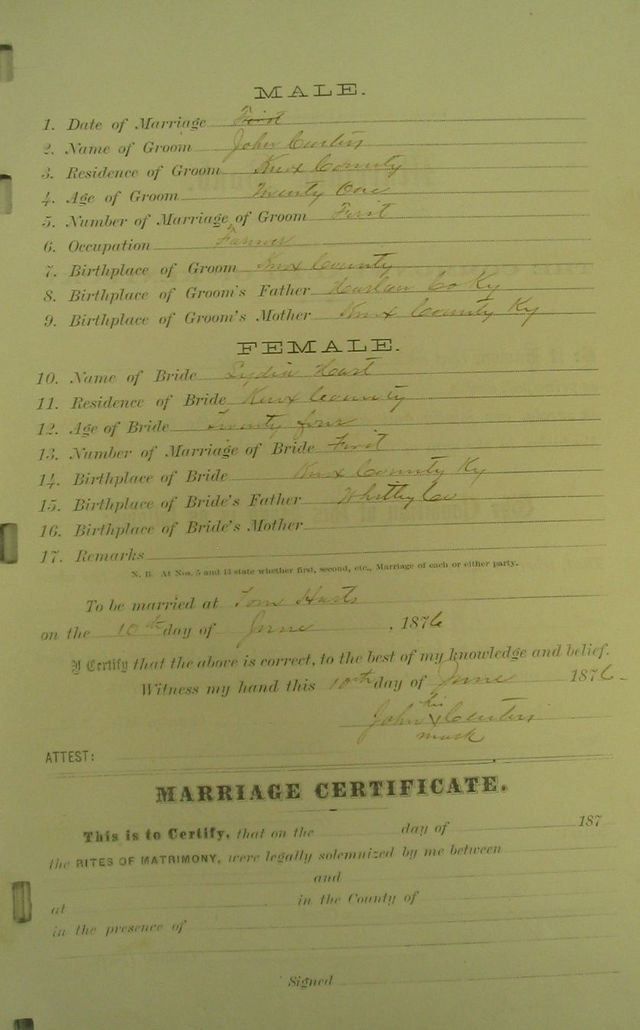 MALE.
1. Date of Marriage First
2. Name of Groom John Curtis
3. Residence of Groom Knox County
4. Age of Groom Twenty One
5. Number of Marriage of Groom First
6. Occupation Farmer
7. Birthplace of Groom Knox County
8. Birthplace of Groom's Father Harlan Co Ky
9. Birthplace of Groom's Mother Knox County Ky
FEMALE.
10. Name of Bride Lydia Hart
11. Residence of Bride Knox County
12. Age of Bride Twenty four
13. Number of Marriage of Bride First
14. Birthplace of Bride Knox County Ky
15. Birthplace of Bride's Father Whitley Co
16. Birthplace of Bride's Mother
17. Remarks
N. B. At Nos. 5 and 13 state whether first, second, etc., Marriage of each or either party.
To be married at Tom Harts
on the 10th day of June, 1876
I Certify that the above is correct, to the best of my knowledge and belief.
Witness my hand this 10th day of June 1876
his
John X
mark
ATTEST:
MARRIAGE CERTIFICATE.
This is to Certify, that on the day of 187
the RITES OF MATRIMONY, were legally solemnized by me between
and
at in the County of
in the presence of
Signed